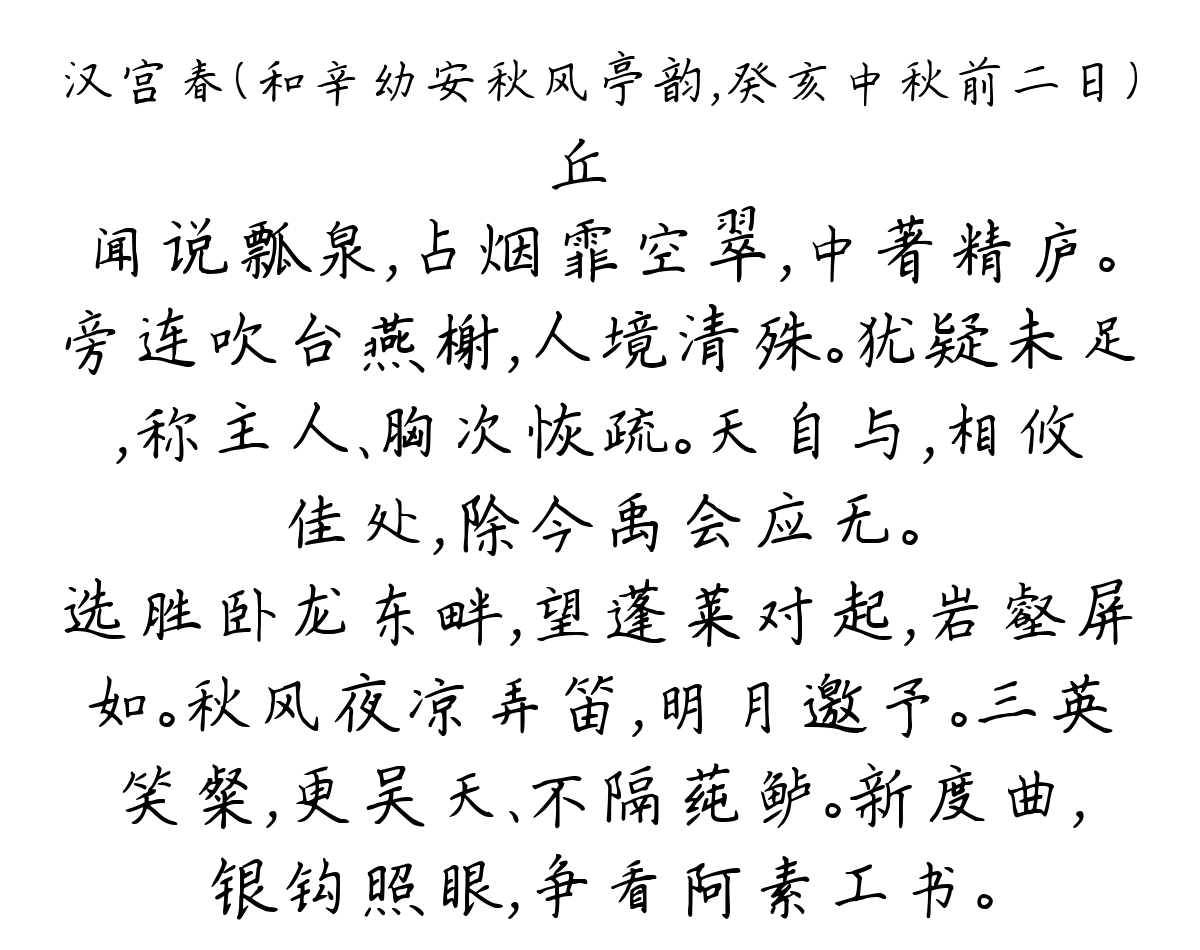 汉宫春(和辛幼安秋风亭韵,癸亥中秋前二日)
丘
闻说瓢泉,占烟霏空翠,中著精庐。
旁连吹台燕榭,人境清殊。犹疑未足
,称主人、胸次恢疏。天自与,相攸
佳处,除今禹会应无。
选胜卧龙东畔,望蓬莱对起,岩壑屏
如。秋风夜凉弄笛,明月邀予。三英
笑粲,更吴天、不隔莼鲈。新度曲,
银钩照眼,争看阿素工书。